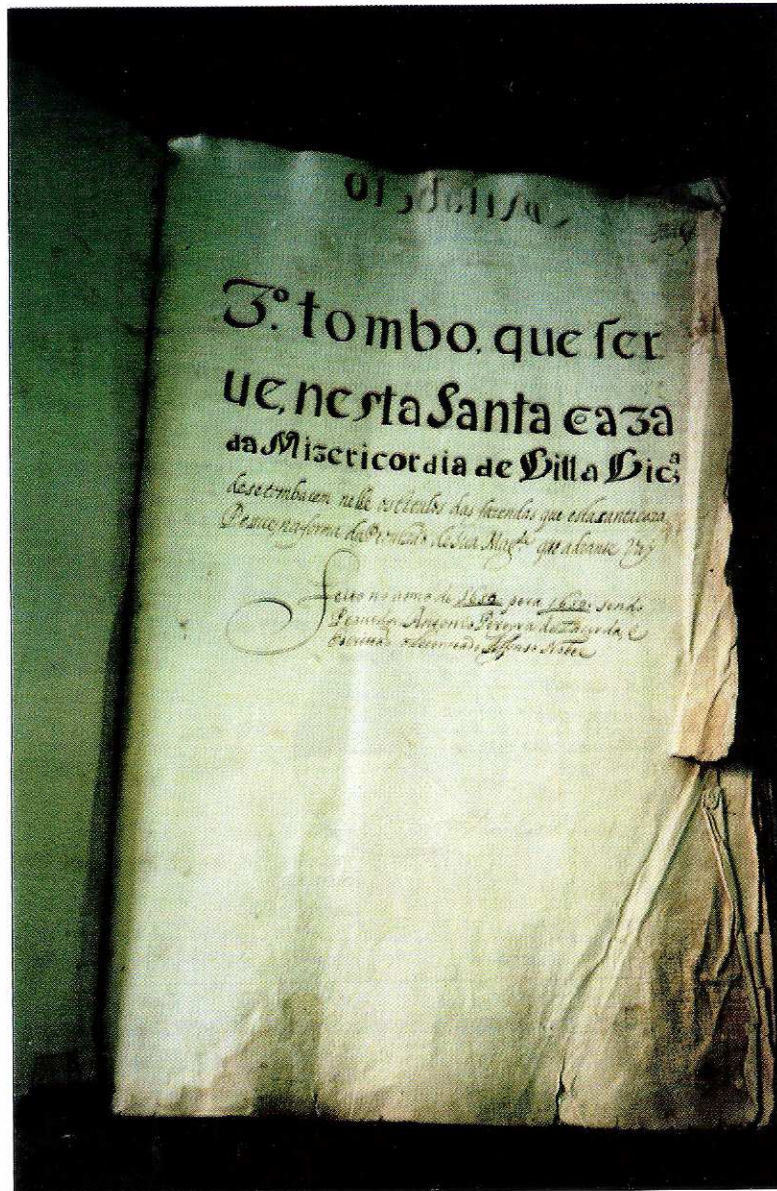 3.º tombo, que ſer
ue, nesta Santa caza
da Mizericordia de Villa Viç.ª
de se tombarem nelle os titulos das fazendas que esta santa caza
Pesue, na forma da Prouizão de sua Mag.de que adiante Vay
Feito no anno de 1652 pera 1653 sendo
Antonio Pereyra de e
Escriuão o Affonso